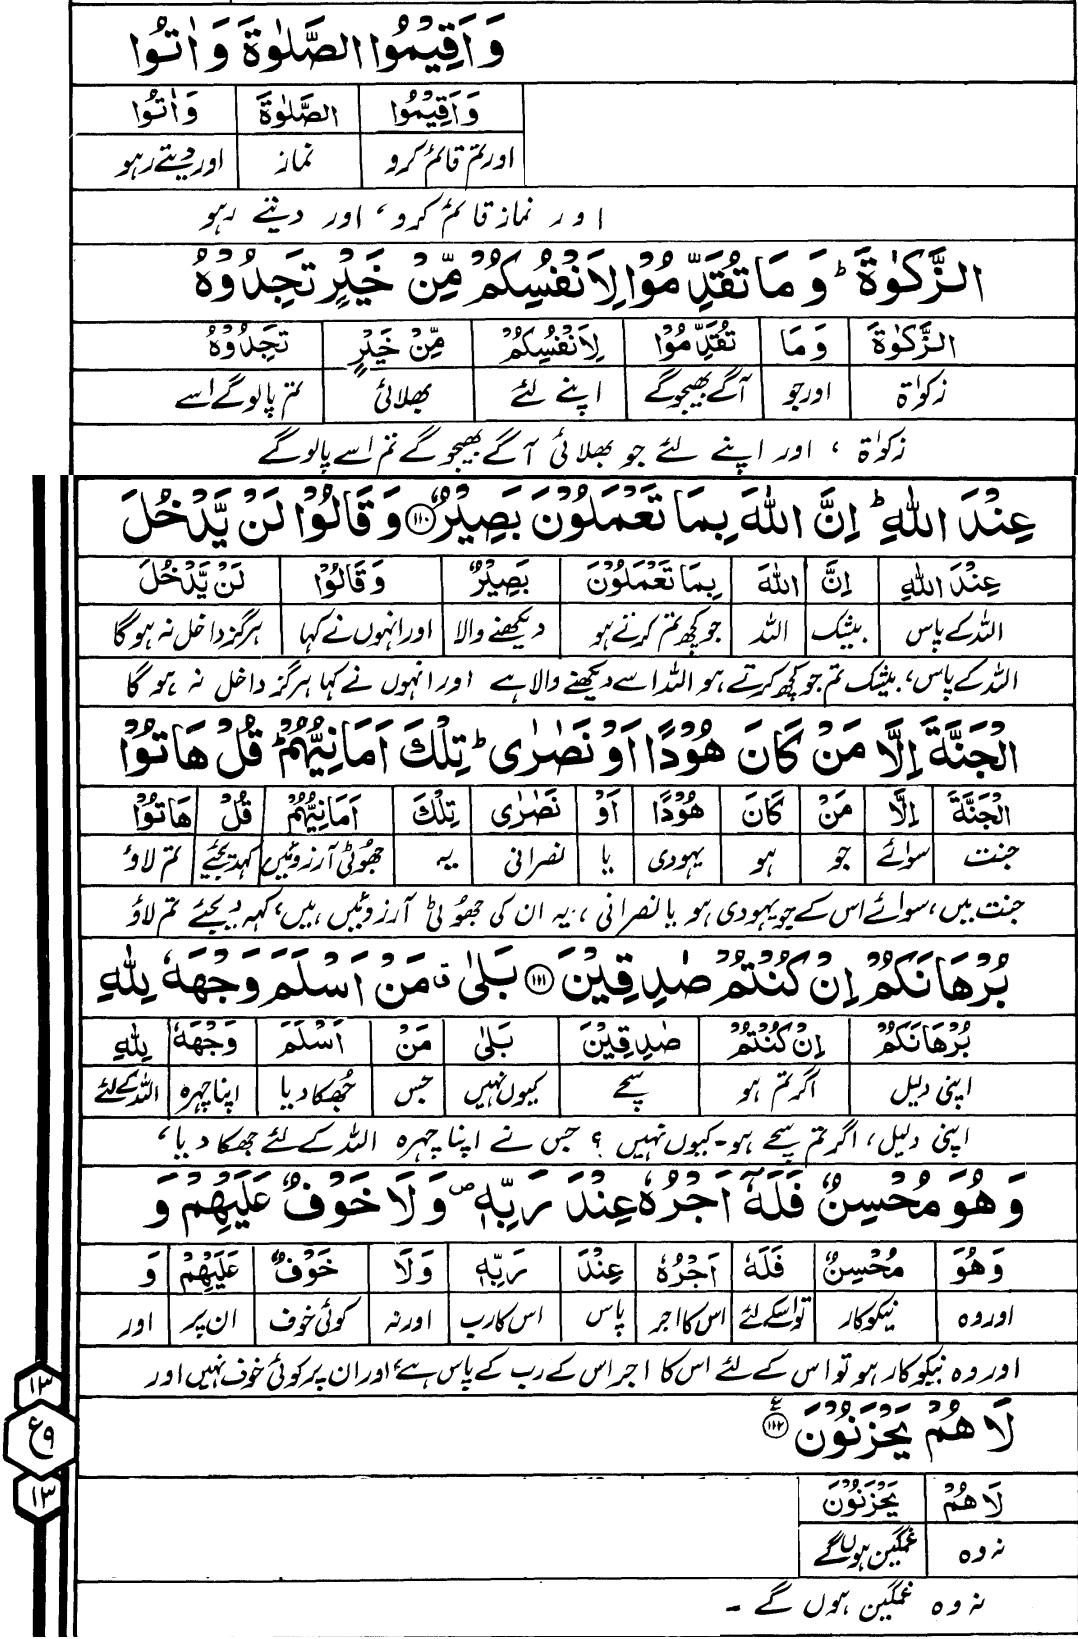 وَاَقِيْمُوا الصَّلٰوةَ وَاٰتُوا
وَاَقِيْمُوا الصَّلٰوةَ وَاٰتُوا
اور تم قائم کرو نماز اور دیتے رہو
اور نماز قائم کرو، اور دیتے رہو
الزَّكٰوةَ ؕ وَمَا تُقَدِّمُوْا لِاَنْفُسِكُمْ مِّنْ خَيْرٍ تَجِدُوْهُ
الزَّكٰوةَ وَمَا تُقَدِّمُوْا لِاَنْفُسِكُمْ مِّنْ خَيْرٍ تَجِدُوْهُ
زکوٰۃ اور جو آگے بھیجو گے اپنے لئے بھلائی تم پالو گے اسے
زکوٰۃ ، اور اپنے لئے جو بھلائی آگے بھیجو گے تم اسے پالو گے
عِنْدَ اللّٰهِ ؕ اِنَّ اللّٰهَ بِمَا تَعْمَلُوْنَ بَصِيْرٌ ﴿۱۱۰﴾ وَقَالُوْا لَنْ يَّدْخُلَ
عِنْدَ اللّٰهِ اِنَّ اللّٰهَ بِمَا تَعْمَلُوْنَ بَصِيْرٌ وَقَالُوْا لَنْ يَّدْخُلَ
اللہ کے پاس بیشک اللہ جو کچھ تم کرتے ہو دیکھنے والا اور انہوں نے کہا ہرگز داخل نہ ہوگا
اللہ کے پاس، بیشک تم جو کچھ کرتے ہو اللہ اسے دیکھنے والا ہے اور انہوں نے کہا ہرگز داخل نہ ہوگا
الْجَنَّةَ اِلَّا مَنْ كَانَ هُوْدًا اَوْ نَصٰرٰى ؕ تِلْكَ اَمَانِيُّهُمْ ؕ قُلْ هَاتُوْا
الْجَنَّةَ اِلَّا مَنْ كَانَ هُوْدًا اَوْ نَصٰرٰى تِلْكَ اَمَانِيُّهُمْ قُلْ هَاتُوْا
جنت سوائے جو ہو یہودی یا نصرانی یہ جھوٹی آرزوئیں کہہ دیجئے تم لاؤ
جنت میں، سوائے اس کے جو یہودی ہو یا نصرانی ، یہ ان کی جھوٹی آرزوئیں ہیں، کہہ دیجئے تم لاؤ
بُرْهَانَكُمْ اِنْ كُنْتُمْ صٰدِقِيْنَ ﴿۱۱۱﴾ بَلٰى ۗ مَنْ اَسْلَمَ وَجْهَهٗ لِلّٰهِ
بُرْهَانَكُمْ اِنْ كُنْتُمْ صٰدِقِيْنَ بَلٰى مَنْ اَسْلَمَ وَجْهَهٗ لِلّٰهِ
اپنی دلیل اگر تم ہو سچے کیوں نہیں جس جھکا دیا اپنا چہرہ اللہ کے لئے
اپنی دلیل، اگر تم سچے ہو۔ کیوں نہیں ؟ جس نے اپنا چہرہ اللہ کے لئے جھکا دیا،
وَهُوَ مُحْسِنٌ فَلَهٗٓ اَجْرُهٗ عِنْدَ رَبِّهٖ ۪ وَلَا خَوْفٌ عَلَيْهِمْ وَ
وَهُوَ مُحْسِنٌ فَلَهٗٓ اَجْرُهٗ عِنْدَ رَبِّهٖ وَلَا خَوْفٌ عَلَيْهِمْ وَ
اور وہ نیکوکار تو اسکے لئے اس کا اجر پاس اس کا رب اور نہ کوئی خوف ان پر اور
اور وہ نیکوکار ہو تو اس کے لئے اس کا اجر اس کے رب کے پاس ہے، اور ان پر کوئی خوف نہیں اور
۱۳
ع۹
۱۳
لَا هُمْ يَحْزَنُوْنَ ﴿۱۱۲﴾ ع
لَا هُمْ يَحْزَنُوْنَ
نہ وہ غمگین ہوں گے
نہ وہ غمگین ہوں گے ۔